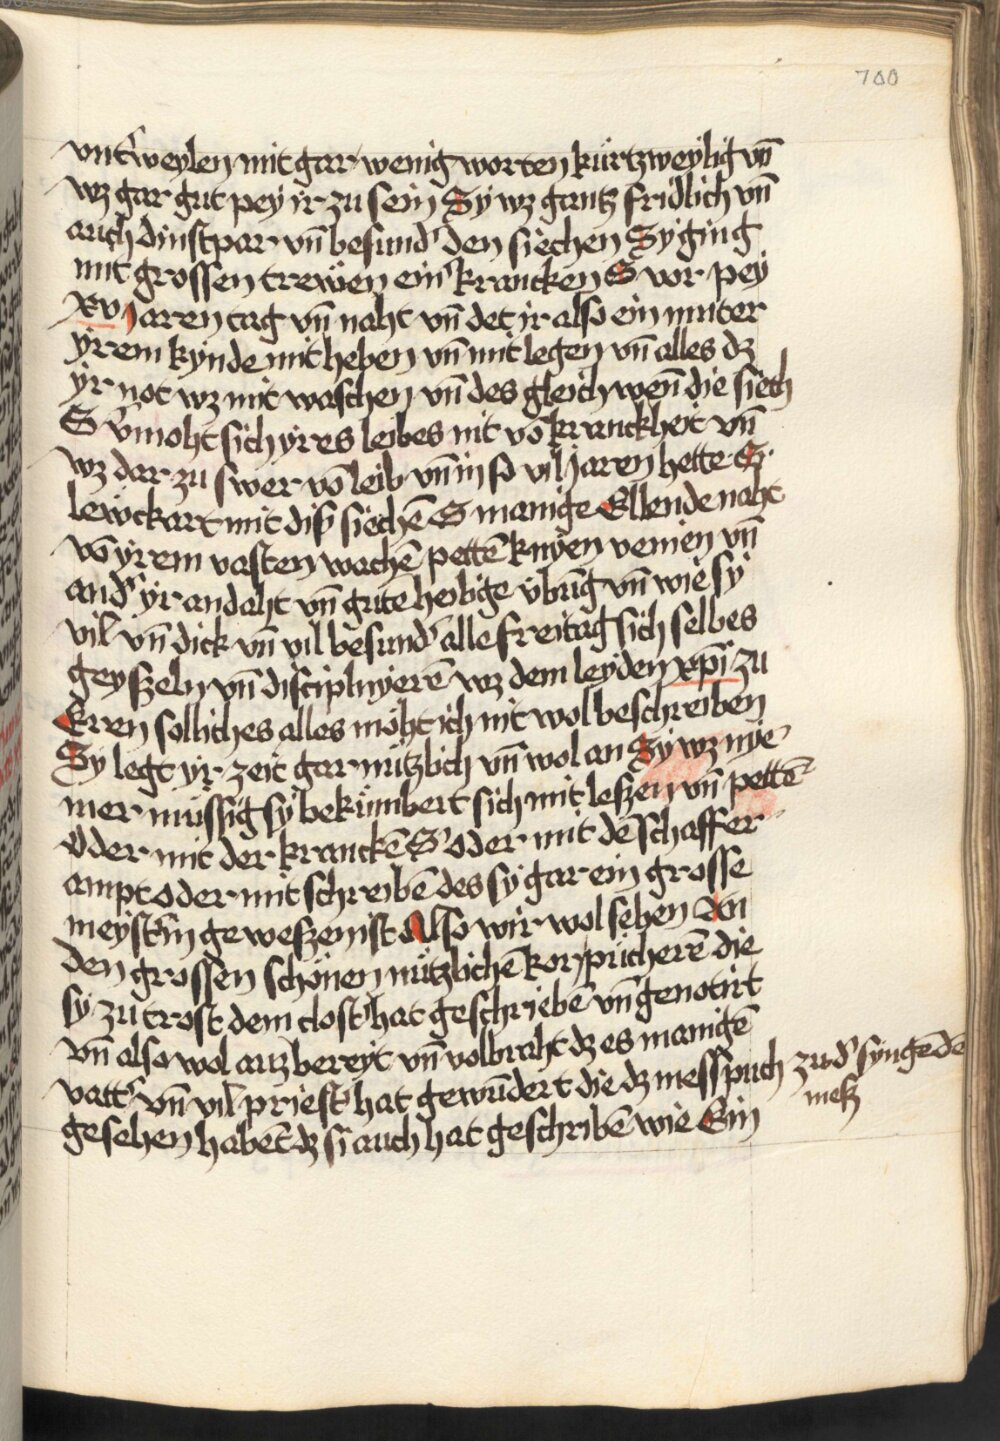 700
vnt' weylen mit gar wenig worten kürtzweylig vn̄
wz gar gut pey ir zu sein Sy wz gantz fridlich vn̄
auch dinstpar vn̄ besund' den siechen Sy ging
mit grossen trewen ein' krancken S vor pey
xv jaren tag vn̄ naht vn̄ det ir also ein muter
yrem kynde mit heben vn̄ mit legen vn̄ alles dz
yr not wz mit waschen vn̄ des gleich wen̄ die siech
S v'moht sich yres leibes nit vō kranckheit vn̄
wz dar zu swer vō leib vn̄ in so vil jaren hette S
lewckart mit dis' siechē S manige Ellende naht
vō yrem vasten wachē pettē knyen venien vn̄
and' yr andaht vn̄ gute heilige v̈būg vn̄ wie sy
vil vn̄ dick vn̄ vil besund' alle freitag sich selbes
geyszeln vn̄ disciplinyerē wz dem leyden xp̄i zu
Eren solliches alles möht ich nit wol beschreiben
Sy legt yr zeit gar nützlich vn̄ wol an Sy wz nye
mer müssig sy bekümbert sich mit leszen vn̄ pettē
Oder mit der kranckē S oder mit dē schaffer
ampt oder mit schreibē des sy gar ein grosse
meyst'in geweszen ist Also wir wol sehen An
den grossen schönen nützlichē kor pücherē die
sy zu trost dem clost' hat geschriebē vn̄ genotirt
vn̄ also wol auz bereyt vn̄ volbraht dz es manigē
vatt' vn̄ vil priest' hat gewūdert die dz messpuch zu d' syngēdē
mesz
gesehen habēt dz si auch hat geschribē wie Ein